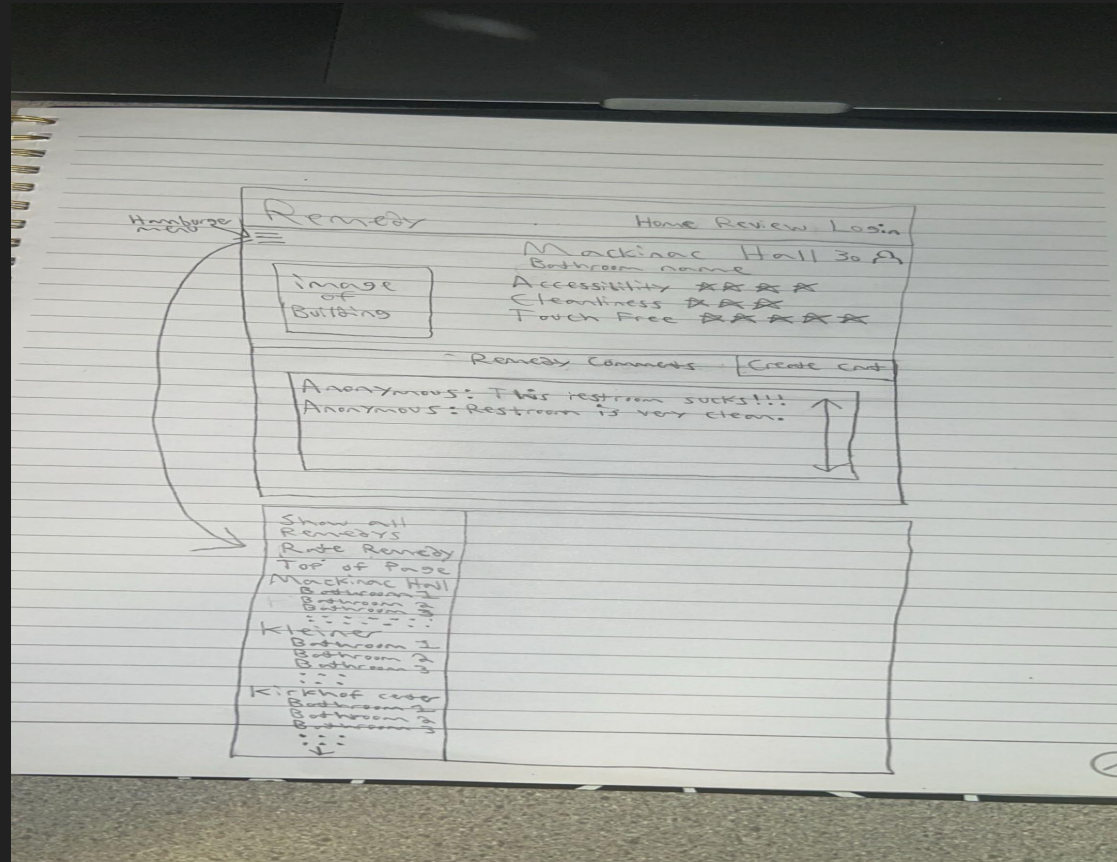 Hamburge
menu
Remedy
Home Review Login
Mackinac Hall 30
Bathroom name
image
of
Building
Accessibility
Cleanliness
Touch Free
Remedy Comments
Create
Anonymous: This restroom sucks!!!
Anonymous: Restroom is very clean.
Show all
Remedys
Rate Remedy
Top of Page
Mackinac Hall
Bathroom 1
Bathroom 2
Bathroom 3
Kleiner
Bathroom 1
Bathroom 2
Bathroom 3
Kirkhof
Bathroom 1
Bathroom 2
Bathroom 3